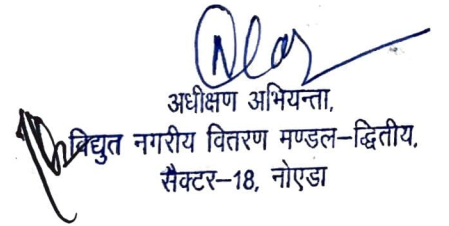 अधीक्षण अभियन्ता,
विद्युत नगरीय वितरण मण्डल–द्वितीय,
सैक्टर–18, नोएडा